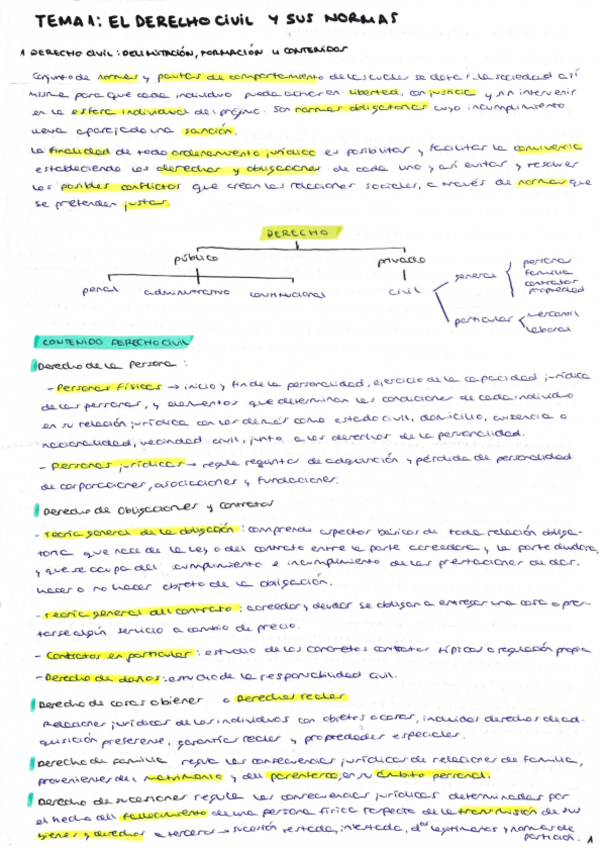 TEMA 1: EL DERECHO CIVIL Y SUS NORMAS
1 DERECHO CIVIL: DELIMITACIÓN, FORMACIÓN Y CONTENIDOS
Conjunto de normas y pautas de comportamiento de las cuales se dota la sociedad a sí
misma para que cada individuo pueda actuar en libertad, con justicia y sin intervenir
en la esfera individual del prójimo. Son normas obligatorias cuyo incumplimiento
lleva aparejado una sanción.
La finalidad de todo ordenamiento jurídico es posibilitar y facilitar la convivencia
estableciendo los derechos y obligaciones de cada uno y así evitar y resolver
los posibles conflictos que crean las relaciones sociales, a través de normas que
se pretenden justas.
DERECHO
público privado
penal administrativo constitucional civil
general
persona
familia
contratos
propiedad
particular
mercantil
laboral
CONTENIDO DERECHO CIVIL
Derecho de la Persona:
- Personas Físicas → inicio y fin de la personalidad, ejercicio de la capacidad jurídica
de las personas, y elementos que determinan las condiciones de cada individuo
en su relación jurídica con los demás como estado civil, domicilio, ausencia o
nacionalidad, vecindad civil, junto a los derechos de la personalidad.
- Personas jurídicas → regula requisitos de adquisición y pérdida de personalidad
de corporaciones, asociaciones y fundaciones.
Derecho de Obligaciones y contratos
- Teoría general de la obligación: comprende aspectos básicos de toda relación obliga-
toria que nace de la ley o del contrato entre la parte acreedora y la parte deudora,
y que se ocupa del cumplimiento e incumplimiento de las prestaciones de dar,
hacer o no hacer objeto de la obligación.
- Teoría general del contrato: acreedor y deudor se obligan a entregar una cosa o pres-
tarse algún servicio a cambio de precio.
- Contratos en particular: estudio de los concretos contratos típicos o regulación propia
- Derecho de daños: estudio de la responsabilidad civil.
Derecho de cosas o bienes o Derechos reales
Relaciones jurídicas de los individuos con objetos o cosas, incluidos derechos de ad-
quisición preferente, garantías reales y propiedades especiales.
Derecho de familia regula las consecuencias jurídicas de relaciones de familia,
provenientes del matrimonio y del parentesco, en su ámbito personal.
Derecho de sucesiones regula las consecuencias jurídicas determinadas por
el hecho del fallecimiento de una persona física respecto de la transmisión de sus
bienes y derechos a terceros → sucesión testada, intestada, dºs legitimarios y normas de
partición. 1